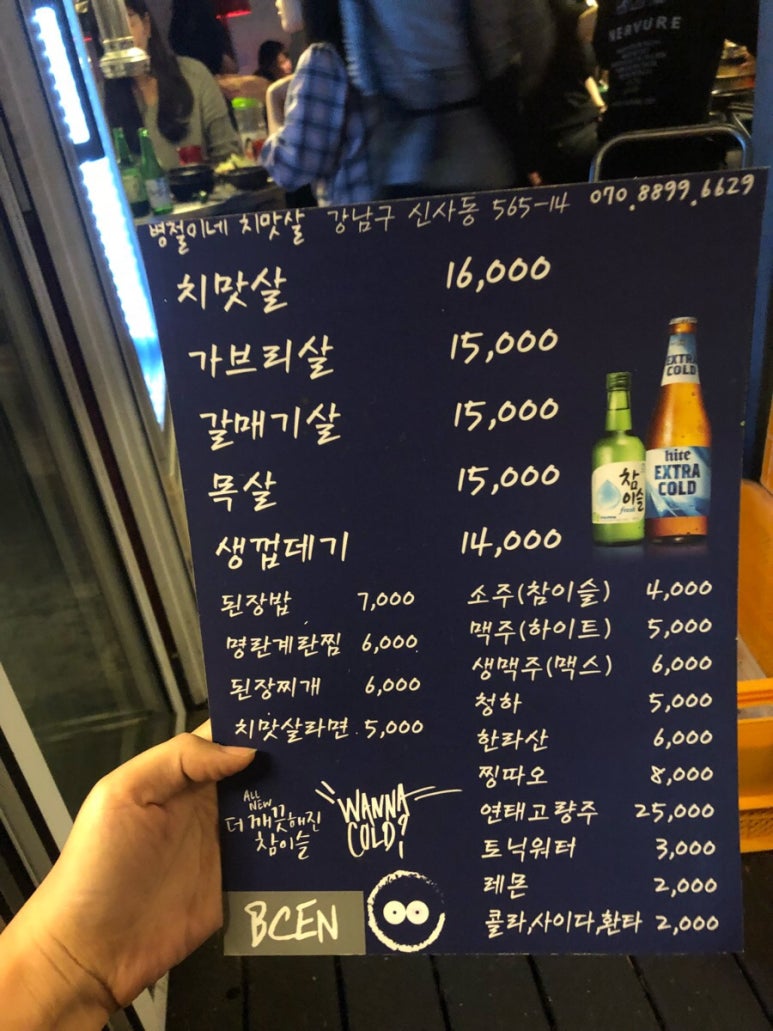 NERVURE
병철이네 치맛살 강남구 신사동 565-14 070.8899.6629
치맛살 16,000
가브리살 15,000
갈매기살 15,000
목살 15,000
생껍데기 14,000
EXTRA COLD
hite
EXTRA COLD
참이슬
fresh
된장밥 7,000
명란계란찜 6,000
된장찌개 6,000
치맛살라면 5,000
소주(참이슬) 4,000
맥주(하이트) 5,000
생맥주(맥스) 6,000
청하 5,000
한라산 6,000
찡따오 8,000
연태고량주 25,000
토닉워터 3,000
레몬 2,000
콜라,사이다,환타 2,000
ALL NEW
더 깨끗해진
참이슬
WANNA
COLD?
BCEN